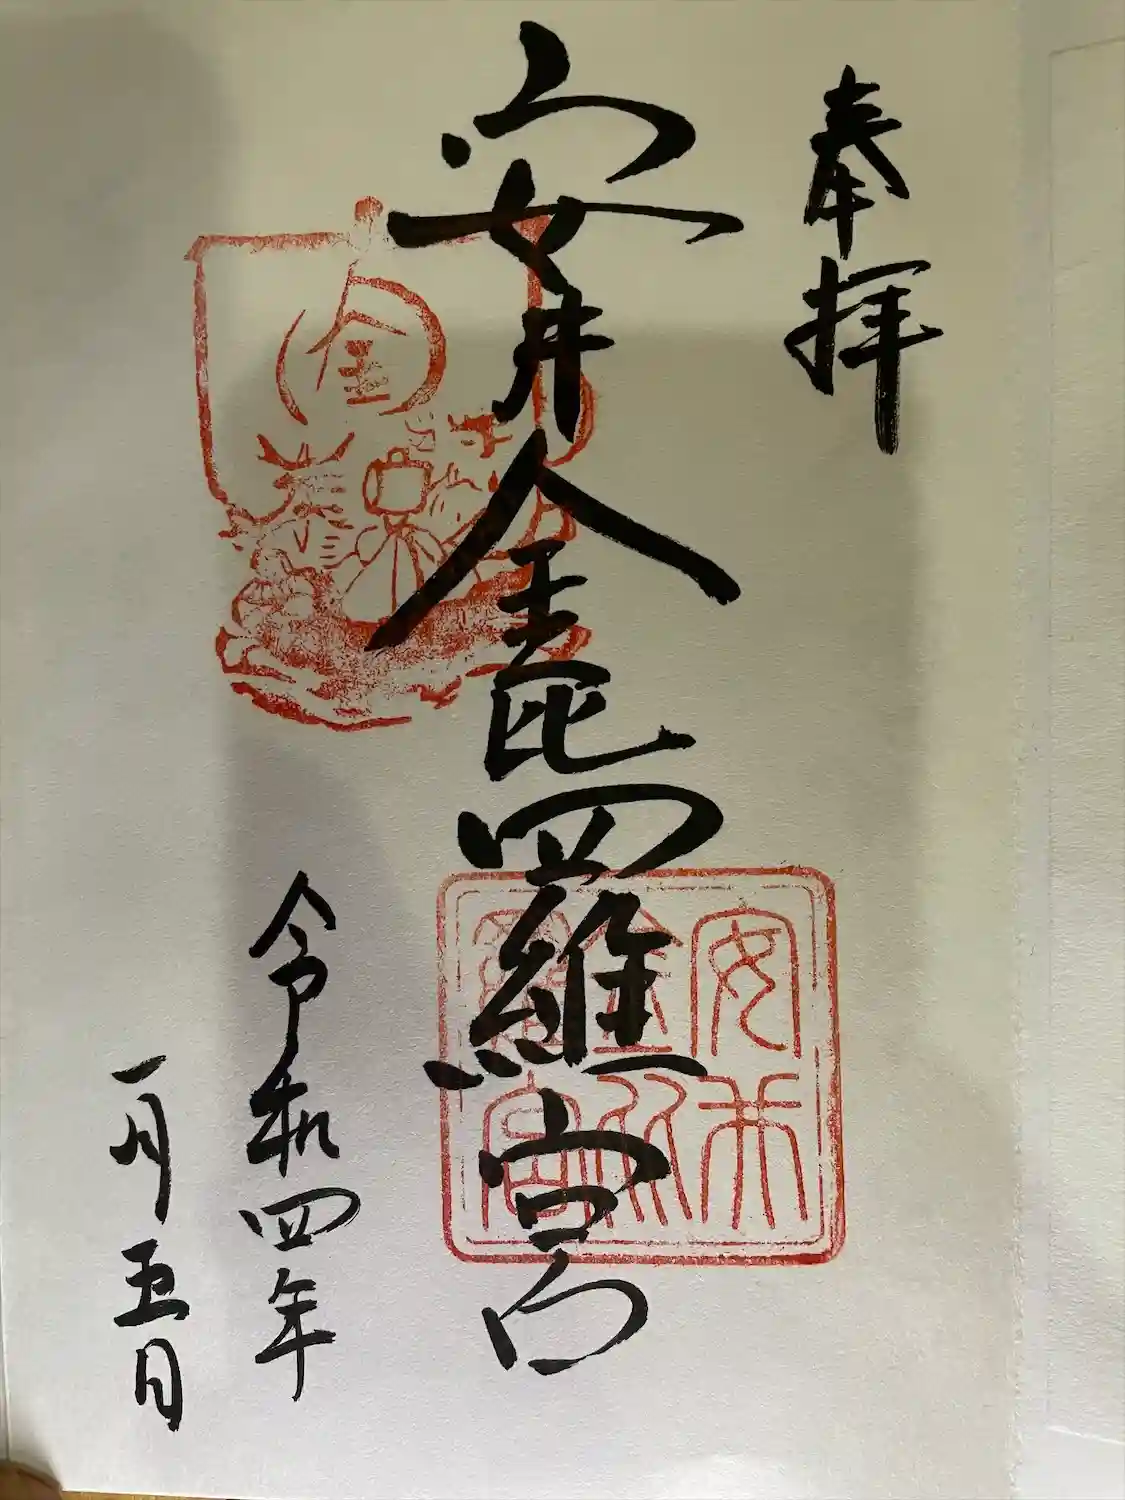 奉拝
安井金毘羅宮
令和四年
一月五日
金
安井金比羅宮